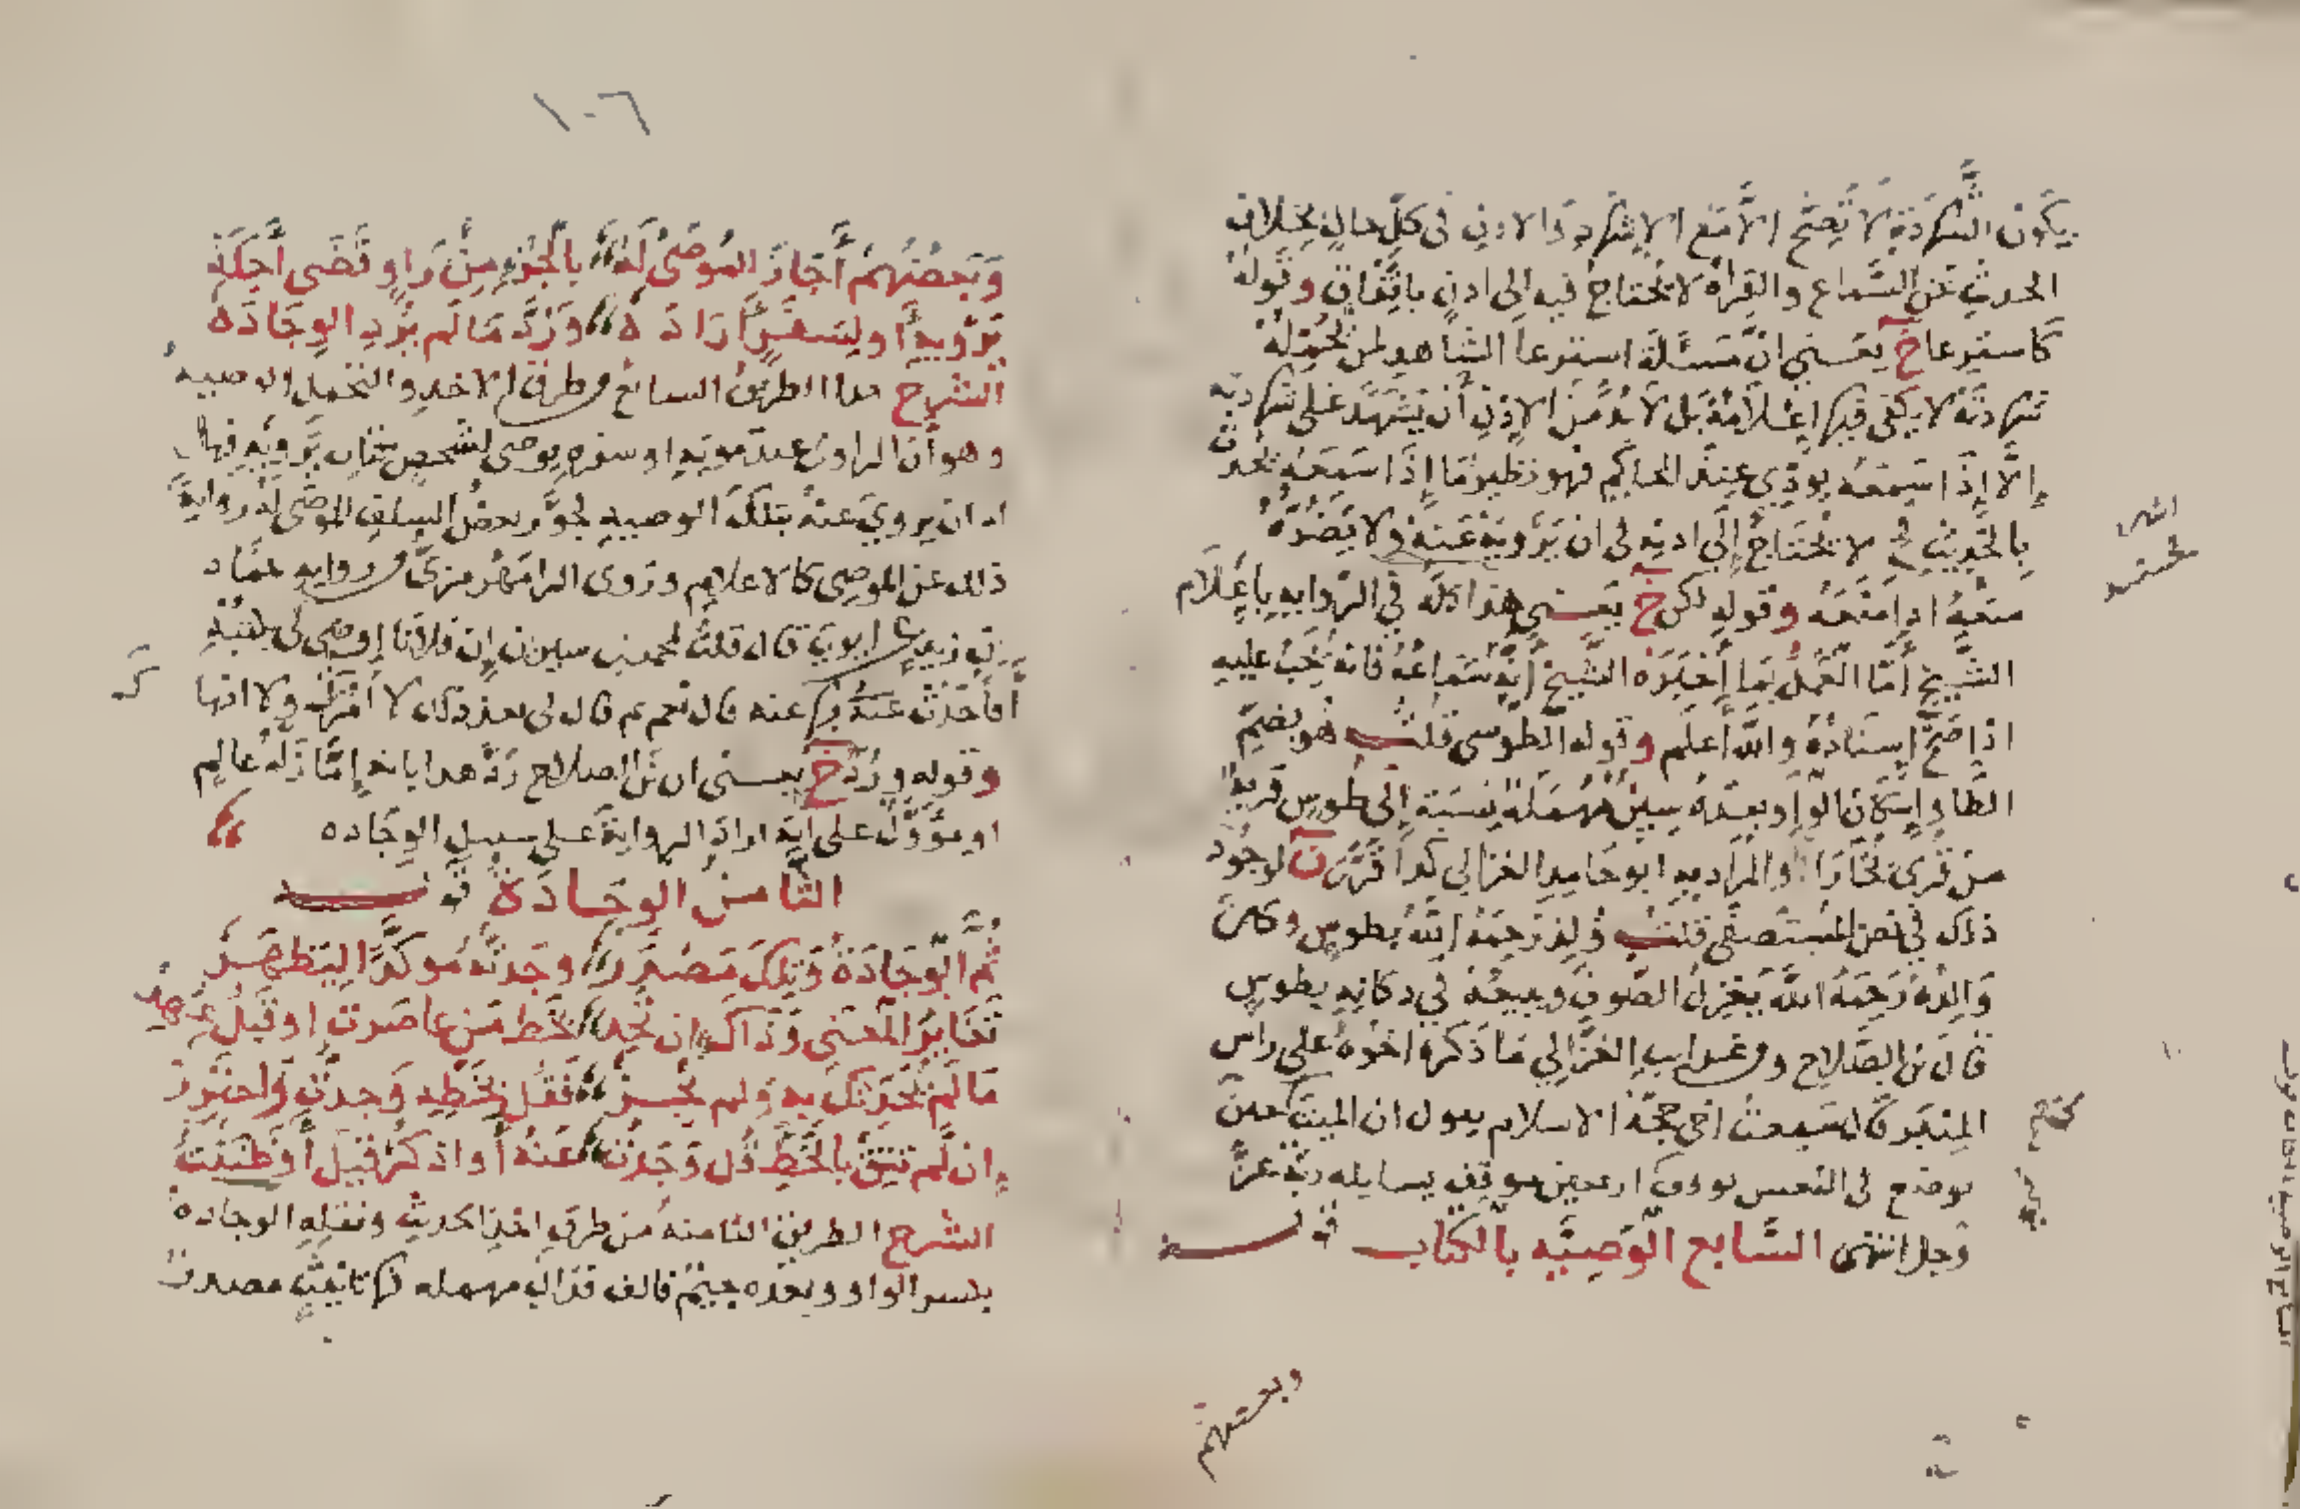 يكون الشهادة لا تصح الا مع الاشهاد والاذن في كل حال بخلاف
الحديث عن السماع والقراة لا يحتاج فيه الى اذن باتفاق وقوله
كاسترعا خ يعني ان مسئلة استرعا الشاهد لمن يحمله
شهادته لا يكفى فيها اعلامه بل لا بد من الاذن أن يشهد على شهادته
إلا إذا سمعه يودي عند الحاكم فهو نظير ما إذا سمعه يحدث
بالحديث لا يحتاج إلى اذنه في ان يرويه عنه ولا يضره
منعه اذا منعه وقوله لكن خ يعني هذا كله في الروايه باعلام
الشيخ أما العمل بما أخبره الشيخ أنه سماعه فانه يجب عليه
اذا صح اسناده والله أعلم وقوله الطوسى قلت هو بضم
الطا واسكان الواو وبعده سين مهملة نسبة إلى طوس قرية
من قرى بخارا والمراد به ابو حامد الغزالي كذا لوجود
ذلك في نص المستصفى قلت ولد رحمه الله بطوس وكان
والده رحمه الله يغزل الصوف ويبيعه في دكانه بطوس
قال بن الصلاح ومن غرايب الغزالي ما ذكره اخوه على راس
المنبر قال سمعت اخى حجة الاسلام يقول ان الميت من حين
يوضع على النعش يوقف اربعين موقف يسايله ربه عز
وجل انتهى السابع الوصيه بالكتاب
وبعضهم
١٠٦
وبعضهم أجاز للموصى له بالجزء من راو قضى أجله
يرويه او لسفر أراده ورد ما لم يرد الوجاده
الشرح هذا الطريق السابع من طرق الاخذ والتحمل الوصيه
وهو أن الراوي عند موته او سفره يوصى لشخص بكتاب يرويه فهل له
ان يروي عنه بتلك الوصيه جوز بعض السلف للموصى له رواية
ذلك عن الموصى كالاعلام وروى الرامهرمزي من روايه حماد
بن زيد عن ايوب قال قلت لمحمد بن سيرين إن فلانا اوصى لى بكتبه
أفأحدث عنه بها عنه قال نعم ثم قال لى بعد ذلك لا آمرك ولا انهاك
وقوله ورد خ يعني ان بن الصلاح رد هذا بانه إما زلة عالم
او مؤول على انه اراد الرواية على سبيل الوجاده
الثامن الوجادة
ثم الوجادة وتلك مصدر وجدته مولدا ليظهر
تغاير المعنى وذاك ان تجد بخط من عاصرت او قبل عهد
ما لم يحدثك به ولم يجز فقل بخطه وجدت واحترز
إن لم تثق بالخط قل وجدت عنه أو اذكر قيل أو ظننت
الشرح الطريق الثامنه من طرق اخذ الحديث ونقله الوجادة
بكسر الواو وبعده جيم فالف فدال مهمله فهاء تانيث مصدر